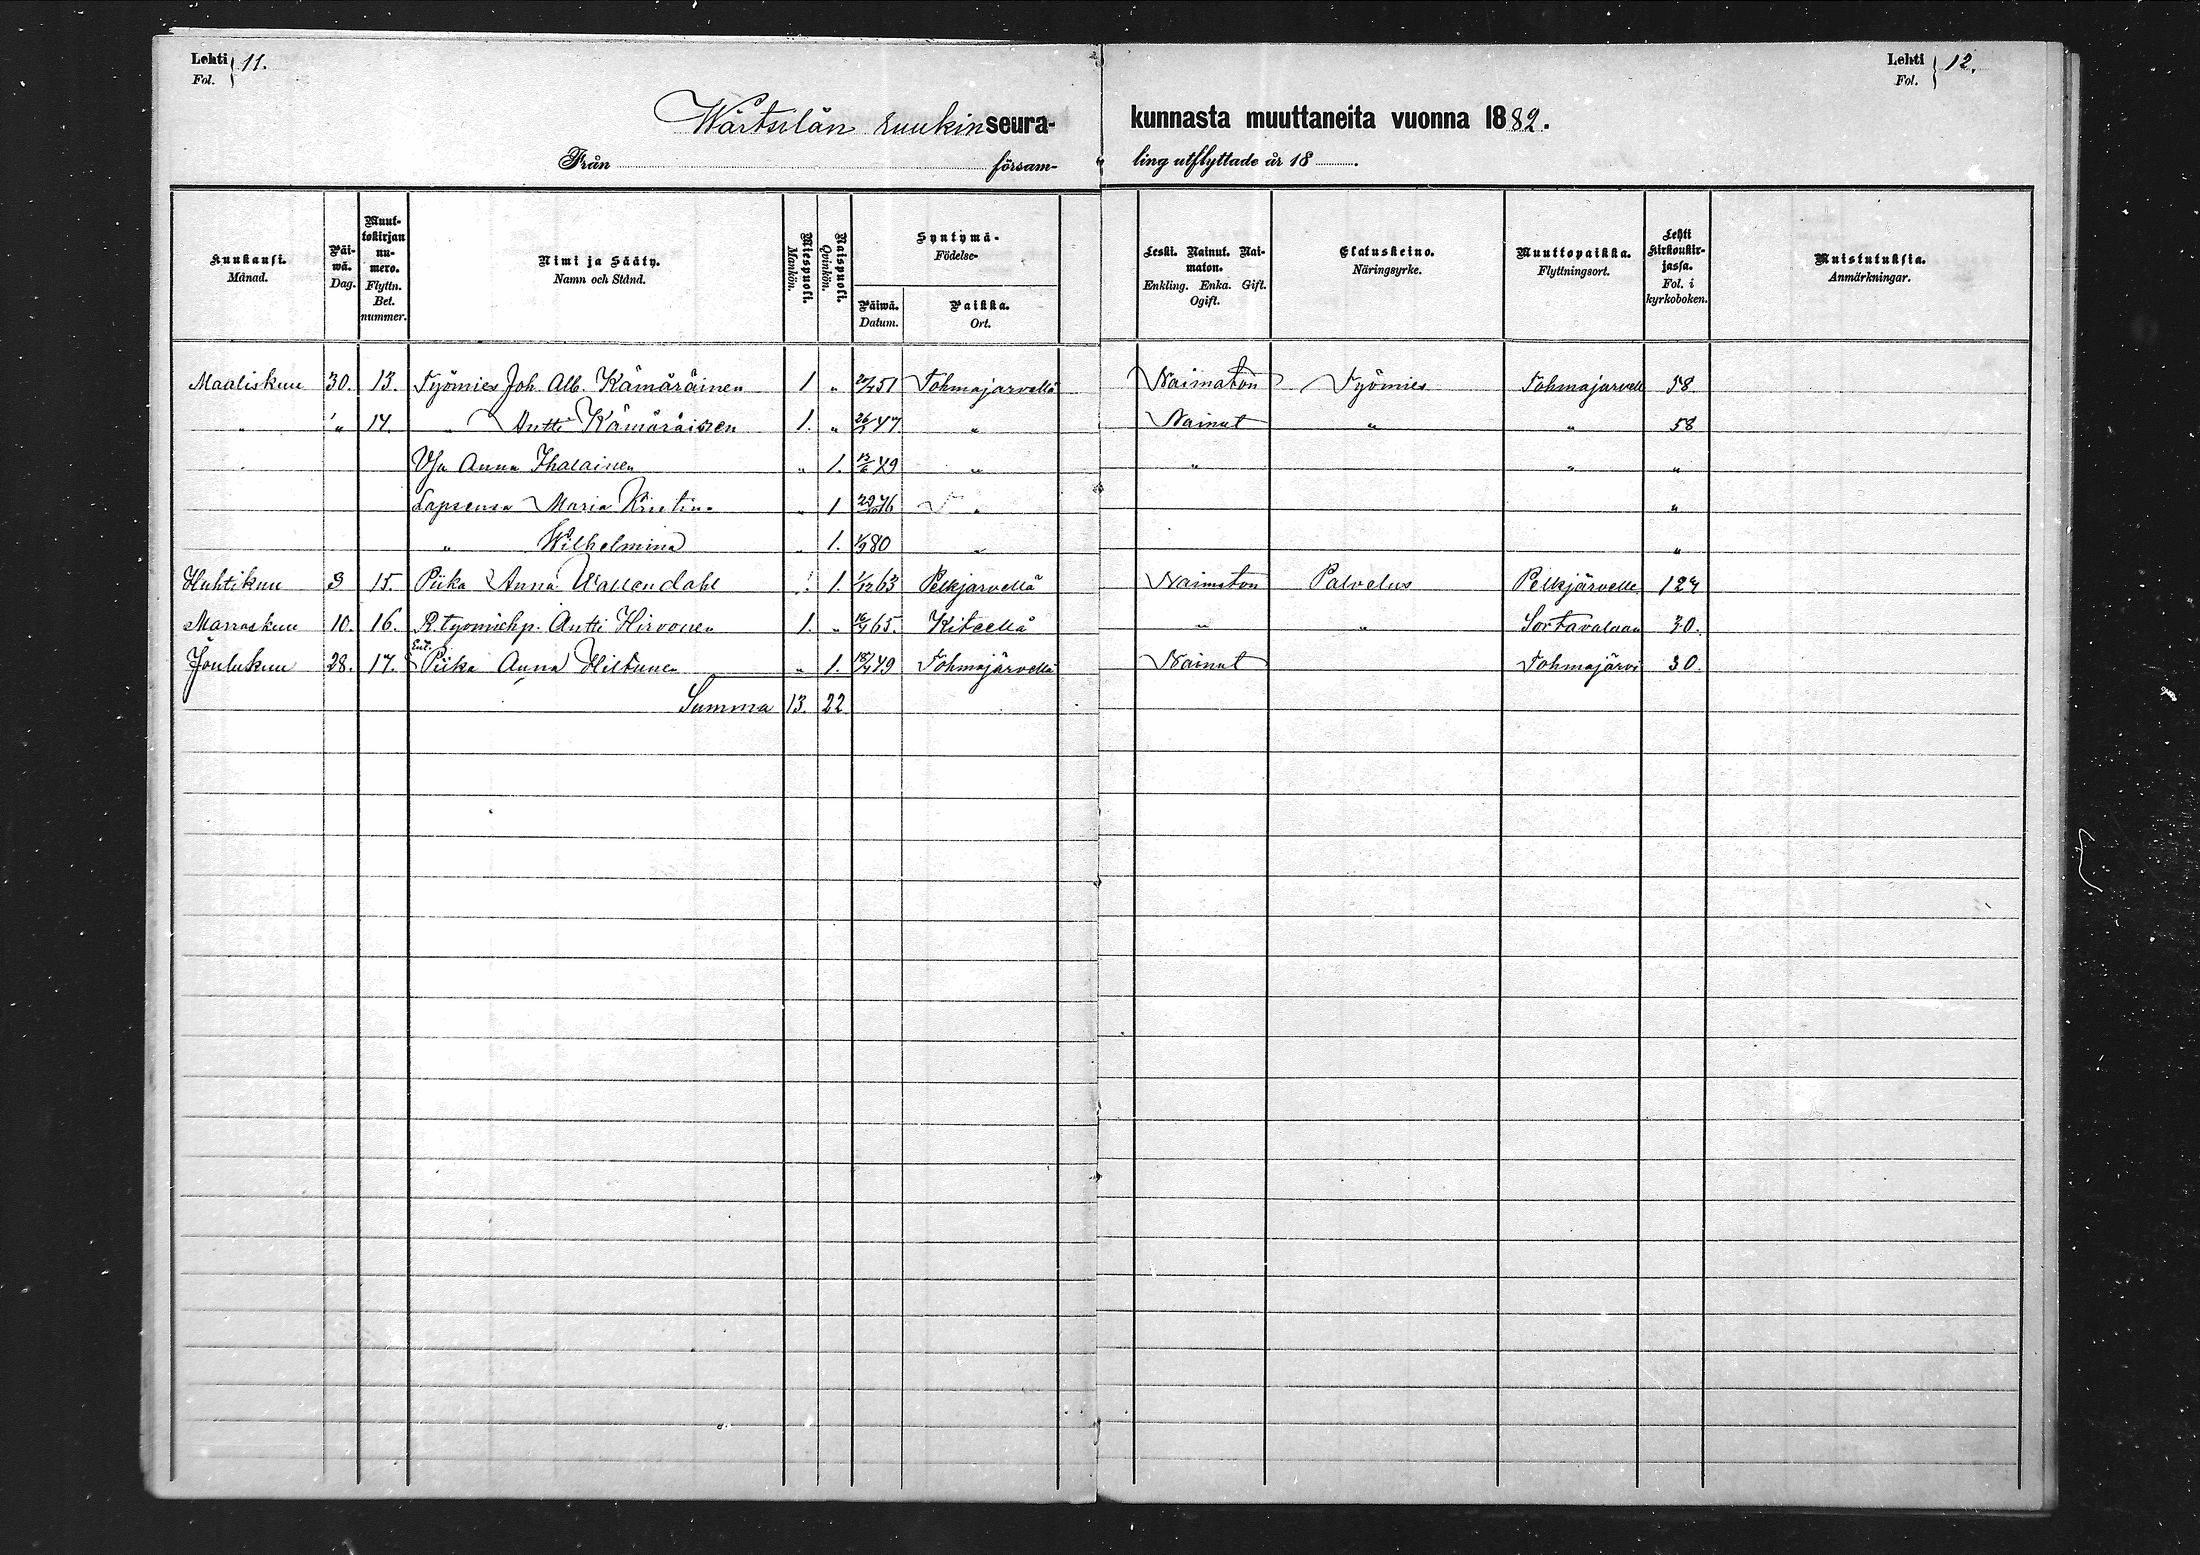 Lehti 11.
Fol.
Lehti 12.
Fol.
Wärtsilän ruukin seura- kunnasta muuttaneita vuonna 1882.
Från försam- ling utflyttade år 18
Kuukausi. Månad. Päi-wä. Dag. Muut-tokirjan nu-mero. Flyttn. Bet. nummer. Nimi ja Sääty. Namn och Stånd. Miespuoli. Mankön. Naispuoli. Qvinkön. Syntymä- Födelse- Päiwä. Datum. Paikka. Ort. Leski. Nainut. Nai-maton. Enkling. Enka. Gift. Ogift. Elatuskeino. Näringsyrke. Muuttopaikka. Flyttningsort. Lehti Kirkonkir-jassa. Fol. i kyrkoboken. Muistutuksia. Anmärkningar.
Maaliskuu 30. 13. Työmies Joh. Alb. Kämäräinen 1 " 51 Tohmajarvellä Naimaton Työmies Tohmajarvelle 58.
" " 14. " Antti Kämäräisen 1. " 47 " Nainut " " 58
Vsa Anna Ihalainen " 1. 49 " " " "
Lapsensa Maria Kristina " 1 76 " "
" Wilhelmina " 1. 80 " "
Huhtikuu 3 15. Piika Anna Wallendahl 1. 1/12 63 Pelkjarvellä Naimaton Palvelus Pelkjärvelle
Marraskuu 10. 16. Antti Hirvonen 1. " 65. Kiteellä " " Sortavalaan 30.
Joulukuu 28. 17. Ent. Piika Anna Hiltunen " 1. 49 Tohmajärvellä Nainut Tohmajärvi 30.
Summa 13. 22